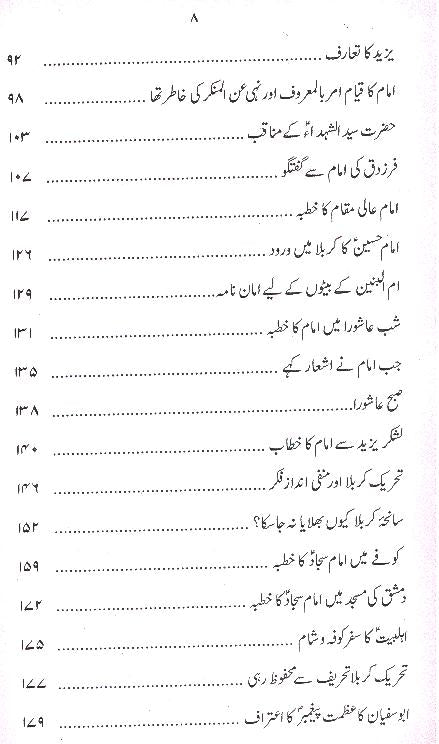 ۸
یزید کا تعارف ........................................ ۹۲
امام کا قیام امر بالمعروف اور نہی عن المنکر کی خاطر تھا ............... ۹۸
حضرت سید الشہداءؑ کے مناقب ............................ ۱۰۳
فرزدق کی امام سے گفتگو ................................ ۱۰۷
امام عالی مقام کا خطبہ ................................ ۱۱۷
امام حسینؑ کا کربلا میں ورود ............................ ۱۲۶
ام البنین کے بیٹوں کے لیے امان نامہ ........................ ۱۲۹
شب عاشورا میں امام کا خطبہ ............................ ۱۳۱
جب امام نے اشعار کہے ................................ ۱۳۵
صبح عاشورا ........................................ ۱۳۸
لشکر یزید سے امام کا خطاب ............................ ۱۴۰
تحریک کربلا اور منفی انداز فکر ............................ ۱۴۶
سانحۂ کربلا کیوں بھلایا نہ جاسکا؟ ........................ ۱۵۲
کوفے میں امام سجادؑ کا خطبہ ............................ ۱۵۹
دمشق کی مسجد میں امام سجادؑ کا خطبہ ........................ ۱۷۲
اہلبیتؑ کا سفر کوفہ و شام ................................ ۱۷۵
تحریک کربلا تحریف سے محفوظ رہی ........................ ۱۷۷
ابوسفیان کا عظمت پیغمبرؐ کا اعتراف ........................ ۱۷۹